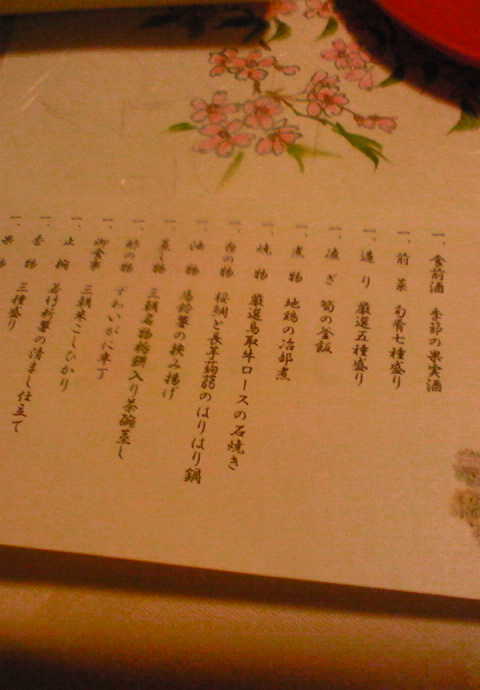 一、食前酒 季節の果実酒
一、前菜 旬肴七種盛り
一、造り 厳選五種盛り
一、凌ぎ 筍の釜飯
一、煮物 地鶏の治部煮
一、焼物 厳選鳥取牛ロースの石焼き
一、台の物 桜鯛と長芋蒟蒻のはりはり鍋
一、油物 馬鈴薯の挟み揚げ
一、蒸し物 三朝名物栃餅入り茶碗蒸し
一、酢の物 ずわいがに
一、御食事 三朝米こしひかり
一、止椀 若竹新若の清まし仕立て
一、香物 三種盛り
一、果物